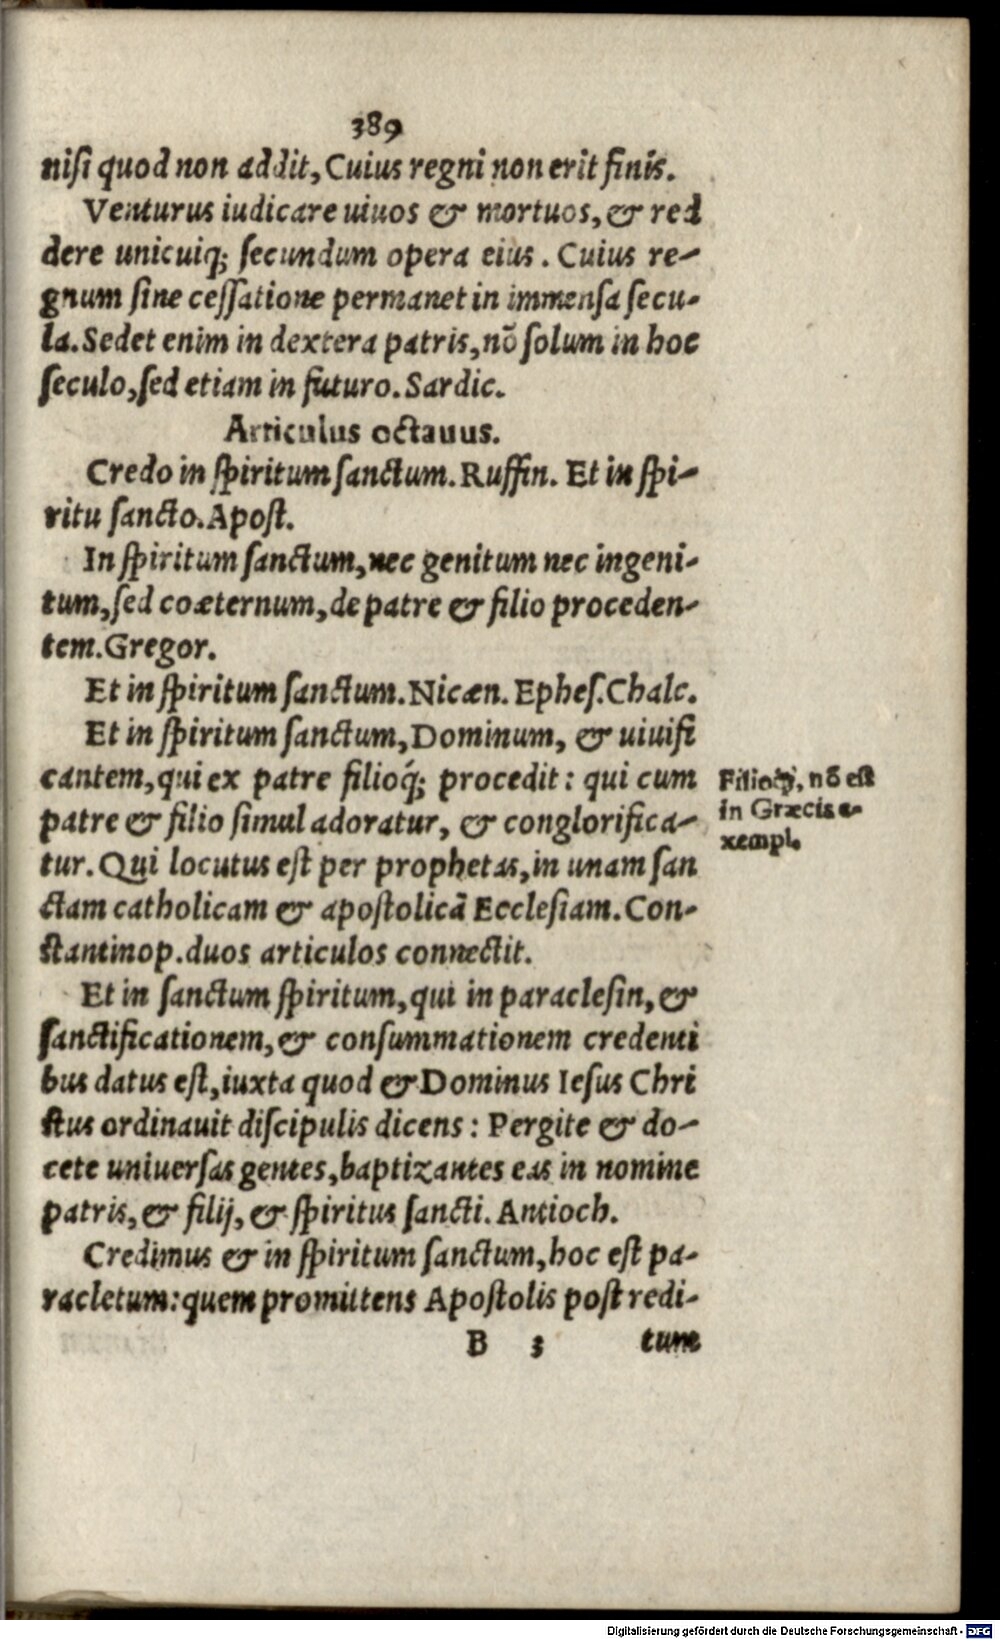 389
niſi quod non addit, Cuius regni non erit finis.
Venturus iudicare uiuos & mortuos, & red
dere unicuiq; ſecundum opera eius. Cuius re-
gnum ſine ceſſatione permanet in immenſa ſecu-
la. Sedet enim in dextera patris, nõ ſolum in hoc
ſeculo, ſed etiam in futuro. Sardic.
Articulus octauus.
Credo in ſpiritum ſanctum. Ruffin. Et in ſpi-
ritu ſancto. Apoſt.
In ſpiritum ſanctum, nec genitum nec ingeni-
tum, ſed coæternum, de patre & filio proceden-
tem. Gregor.
Et in ſpiritum ſanctum. Nicæn. Epheſ. Chalc.
Et in ſpiritum ſanctum, Dominum, & uiuifi
cantem, qui ex patre filioq́; procedit: qui cum
patre & filio ſimul adoratur, & conglorifica-
tur. Qui locutus eſt per prophetas, in unam ſan
ctam catholicam & apoſtolicã Eccleſiam. Con-
ſtantinop. duos articulos connectit.
Filioq́;, nõ eſt
in Græcis e-
xempl.
Et in ſanctum ſpiritum, qui in paracleſin, &
ſanctificationem, & conſummationem credenti
bus datus eſt, iuxta quod & Dominus Ieſus Chri
ſtus ordinauit diſcipulis dicens: Pergite & do-
cete uniuerſas gentes, baptizantes eas in nomine
patris, & filij, & ſpiritus ſancti. Antioch.
Credimus & in ſpiritum ſanctum, hoc eſt pa-
racletum: quem promittens Apoſtolis poſt redi-
B 3 tum
Digitalisierung gefördert durch die Deutsche Forschungsgemeinschaft - DFG